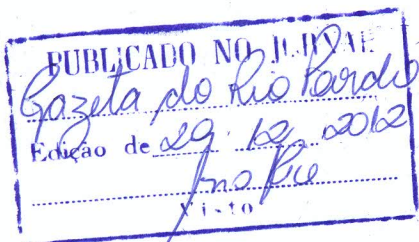 PUBLICADO NO JORNAL
Gazeta do Rio Pardo
Edição de 29.12.2012
Visto